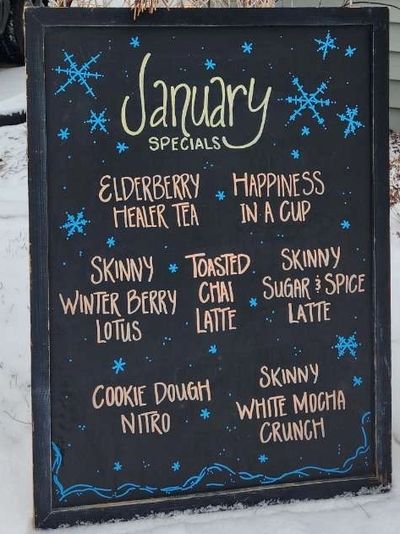 January
SPECIALS
ELDERBERRY
HEALER TEA
HAPPINESS
IN A CUP
SKINNY
WINTER BERRY
LOTUS
TOASTED
CHAI
LATTE
SKINNY
SUGAR & SPICE
LATTE
COOKIE DOUGH
NITRO
SKINNY
WHITE MOCHA
CRUNCH